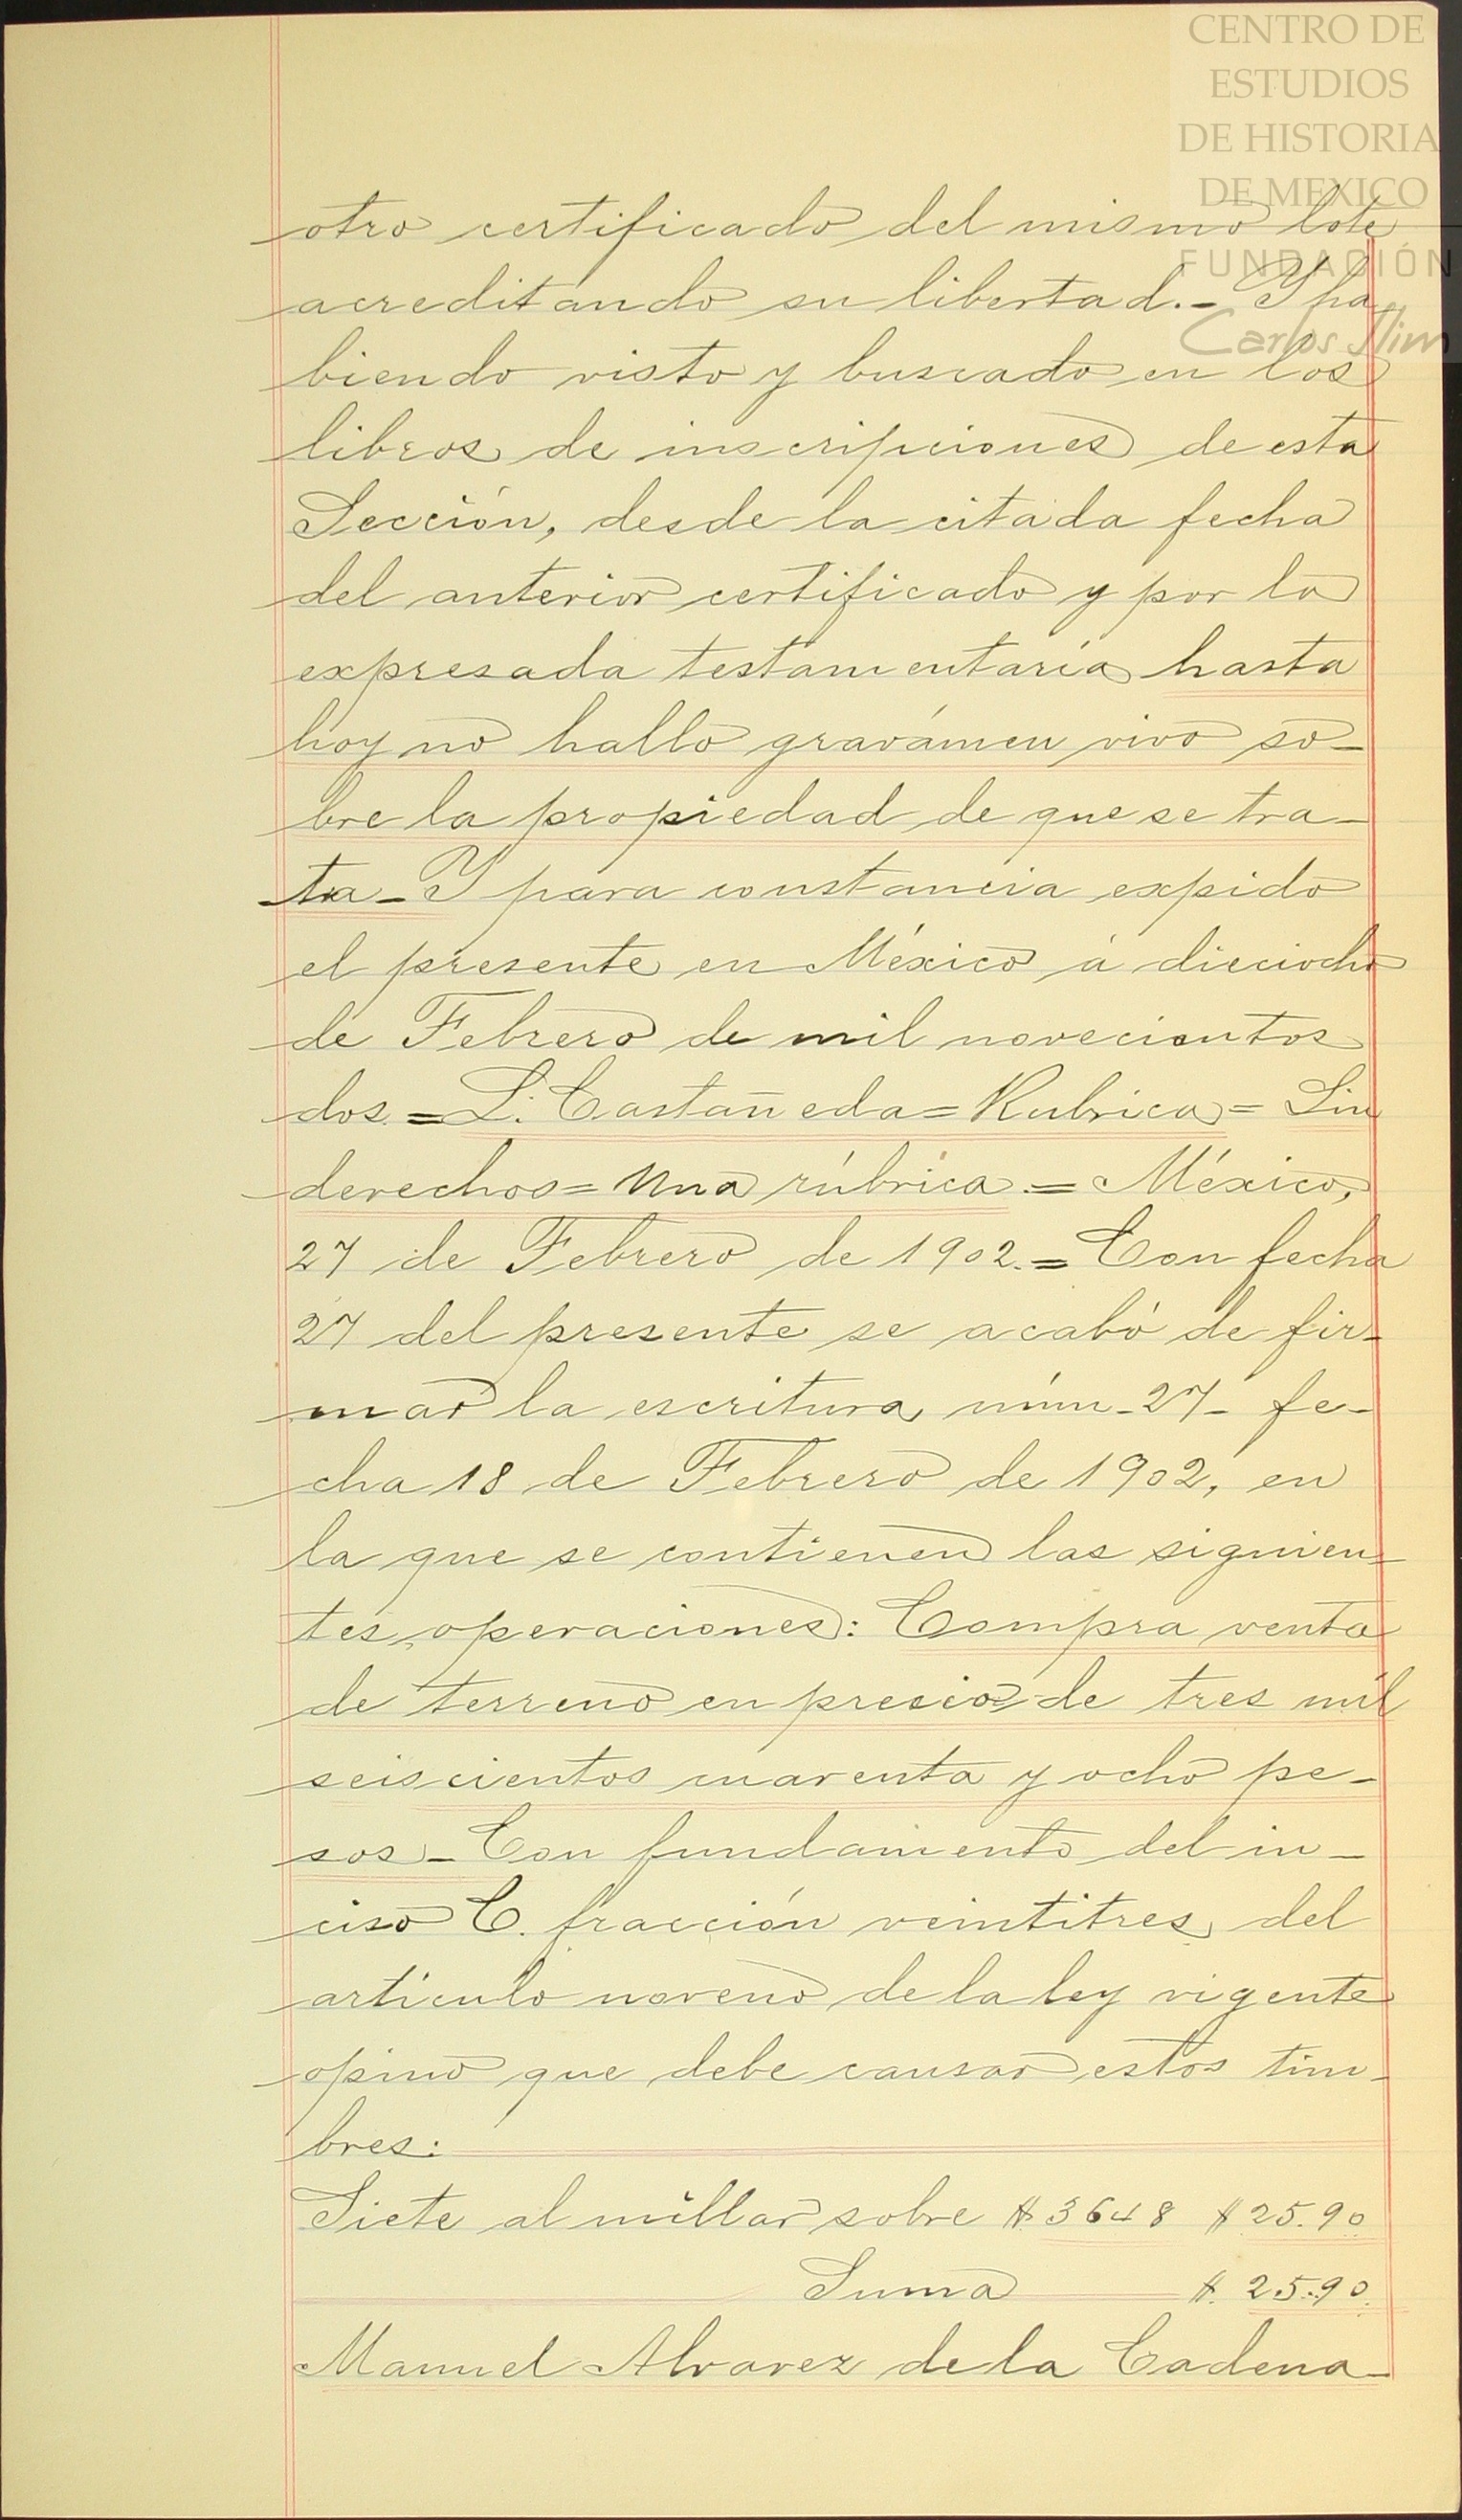 CENTRO DE
ESTUDIOS
DE HISTORIA
DE MEXICO
FUNDACIÓN
Carlos Slim
otro certificado del mismo lote
acreditando su libertad.- Y ha
biendo visto y buscado en los
libros de inscripciones de esta
Sección, desde la citada fecha
del anterior certificado y por la
expresada testamentaría hasta
hoy no hallo gravámen vivo so-
bre la propiedad de que se tra-
ta- Y para constancia expido
el presente en México á dieciocho
de Febrero de mil novecientos
dos.= L. Castañeda= Rubrica= Sin
derechos= Una rúbrica.= México,
27 de Febrero de 1902.= Con fecha
27 del presente se acabó de fir-
mar la escritura núm- 27- fe-
cha 18 de Febrero de 1902, en
la que se contienen las siguien-
tes operaciones: Compra venta
de terreno en precio de tres mil
seiscientos cuarenta y ocho pe-
sos- Con fundamento del in-
ciso C. fracción veintitres del
artículo noveno de la ley vigente
opino que debe causar estos tim-
bres:
Siete al millar sobre $ 3648 $ 25.90
Suma $. 25.90.
Manuel Alvarez de la Cadena-